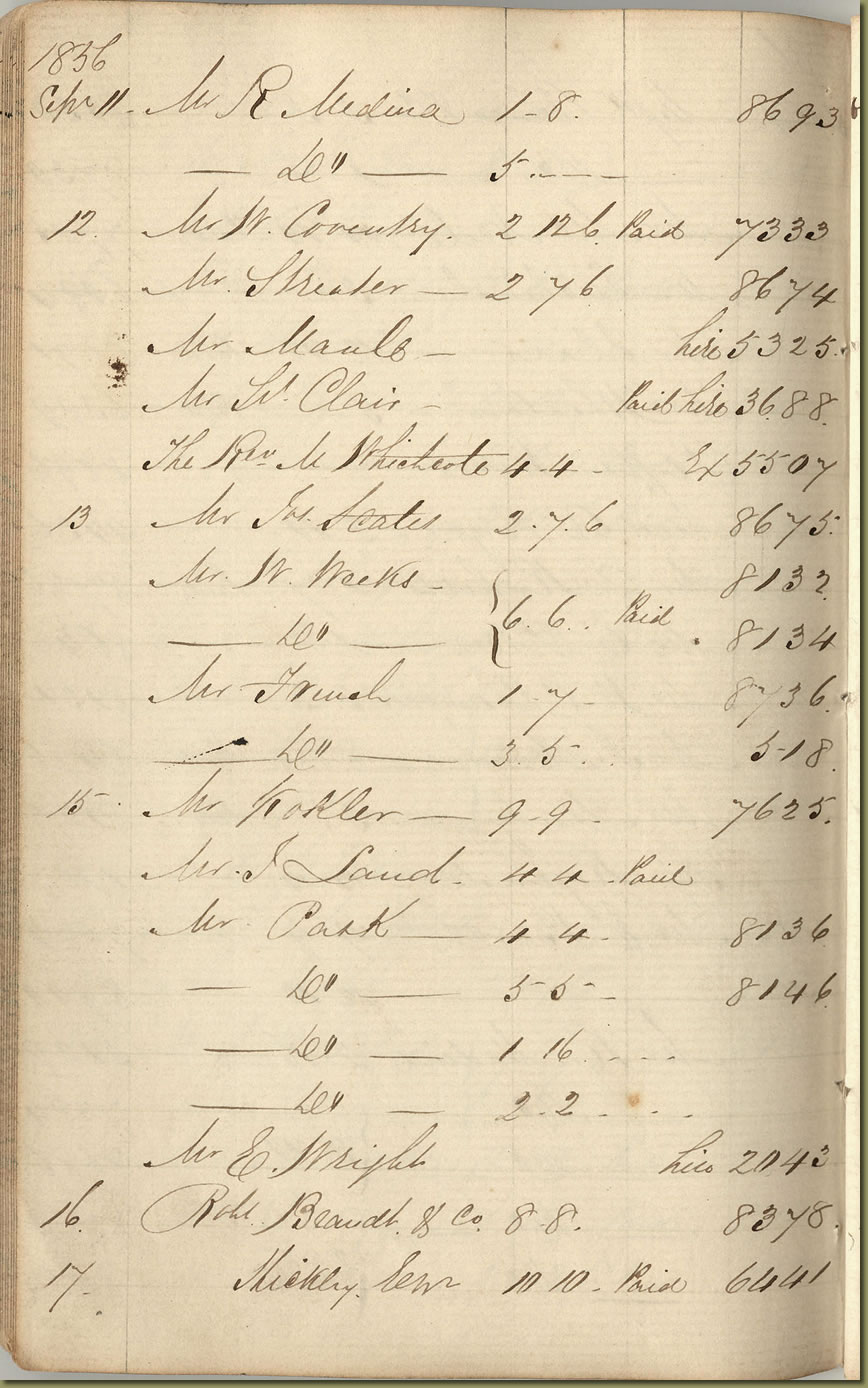 1856
Sepr 11 - Mr R Medina 1 - 8. 8693
— Do" — 5 . - - -
12. Mr W. Coventry. 2 12 6. Paid 7333
Mr. Streater — 2 7 6 8674
Mr — hire 5325.
Mr St. Clair - Paid hire 3688.
The Revr M Whichcote 4 - 4 - Ex 5507
13 Mr Jos. Scates 2. 7. 6 8675.
Mr. W. Weeks - 8132
— Do" — { 6. 6. . Paid . 8134
Mr French 1 - 7 - 8736.
— Do" — 3. 5 - . . 518.
15. Mr — 9 - 9 - 7625.
Mr. J Land - 4 4 - Paid
Mr. Park — 4 4 - 8136
— Do" — 5 5 - - 8146
— Do" — 1 16 . - - -
— Do" — 2 - 2 - . - - -
Mr E. Wright hire 2043
16. Robt. Brandt. & Co. 8 - 8. 8378.
17 - 10 10 - Paid 6441